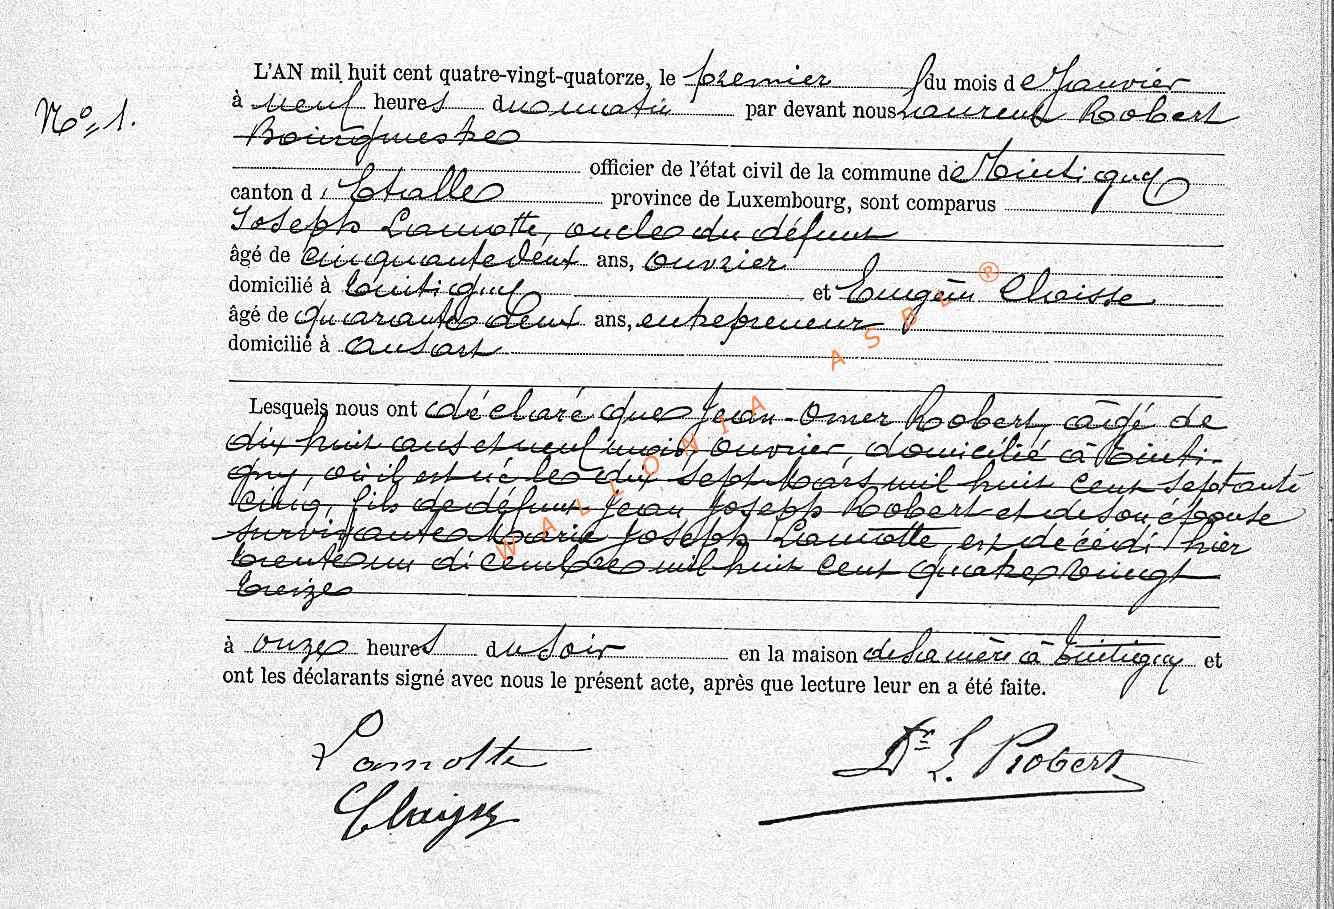 L'AN mil huit cent quatre-vingt-quatorze, le premier du mois de Janvier
No 1.
à neuf heures du matin par devant nous Laurent Robert
Bourgmestre
officier de l'état civil de la commune de Tintigny
canton d'Etalle province de Luxembourg, sont comparus
Joseph Lamotte, oncle du défunt
âgé de cinquante deux ans, ouvrier
domicilié à Tintigny et Eugène Claisse
âgé de quarante deux ans, entrepreneur
domicilié à Ansart
Lesquels nous ont déclaré que Jean-Omer Robert, âgé de
dix huit ans et neuf mois, ouvrier, domicilié à Tinti-
gny, où il est né le dix sept Mars mil huit cent septante
cinq, fils de défunt Jean Joseph Robert et de son épouse
survivante Marie Joseph Lamotte, est décédé hier
trente un décembre mil huit cent quatre vingt
treize
à onze heures du soir en la maison de sa mère à Tintigny et
ont les déclarants signé avec nous le présent acte, après que lecture leur en a été faite.
Lamotte
Dr L. Robert
Claisse
WALLONIA ASBL ®